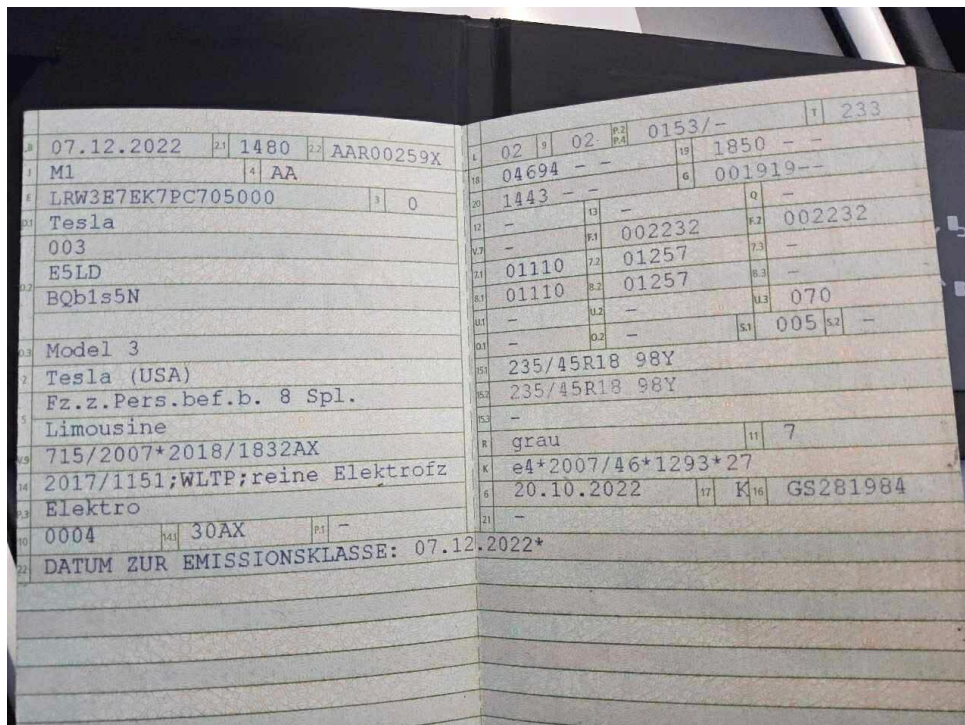 B 07.12.2022 2.1 1480 2.2 AAR00259X
J M1 4 AA
E LRW3E7EK7PC705000 3 0
D.1 Tesla
003
D.2 E5LD
BQb1s5N
D.3 Model 3
2 Tesla (USA)
Fz.z.Pers.bef.b. 8 Spl.
5 Limousine
V.9 715/2007*2018/1832AX
14 2017/1151;WLTP;reine Elektrofz
P.3 Elektro
10 0004 14.1 30AX P.1 -
22 DATUM ZUR EMISSIONSKLASSE: 07.12.2022*
L 02 9 02 P.2 P.4 0153/- T 233
18 04694 - - 19 1850 - -
20 1443 - - G 001919--
12 - 13 - Q -
V.7 - F.1 002232 F.2 002232
7.1 01110 7.2 01257 7.3 -
8.1 01110 8.2 01257 8.3 -
U.1 - U.2 - U.3 070
O.1 - O.2 - S.1 005 S.2 -
15.1 235/45R18 98Y
15.2 235/45R18 98Y
15.3 -
R grau 11 7
K e4*2007/46*1293*27
6 20.10.2022 17 K 16 GS281984
21 -